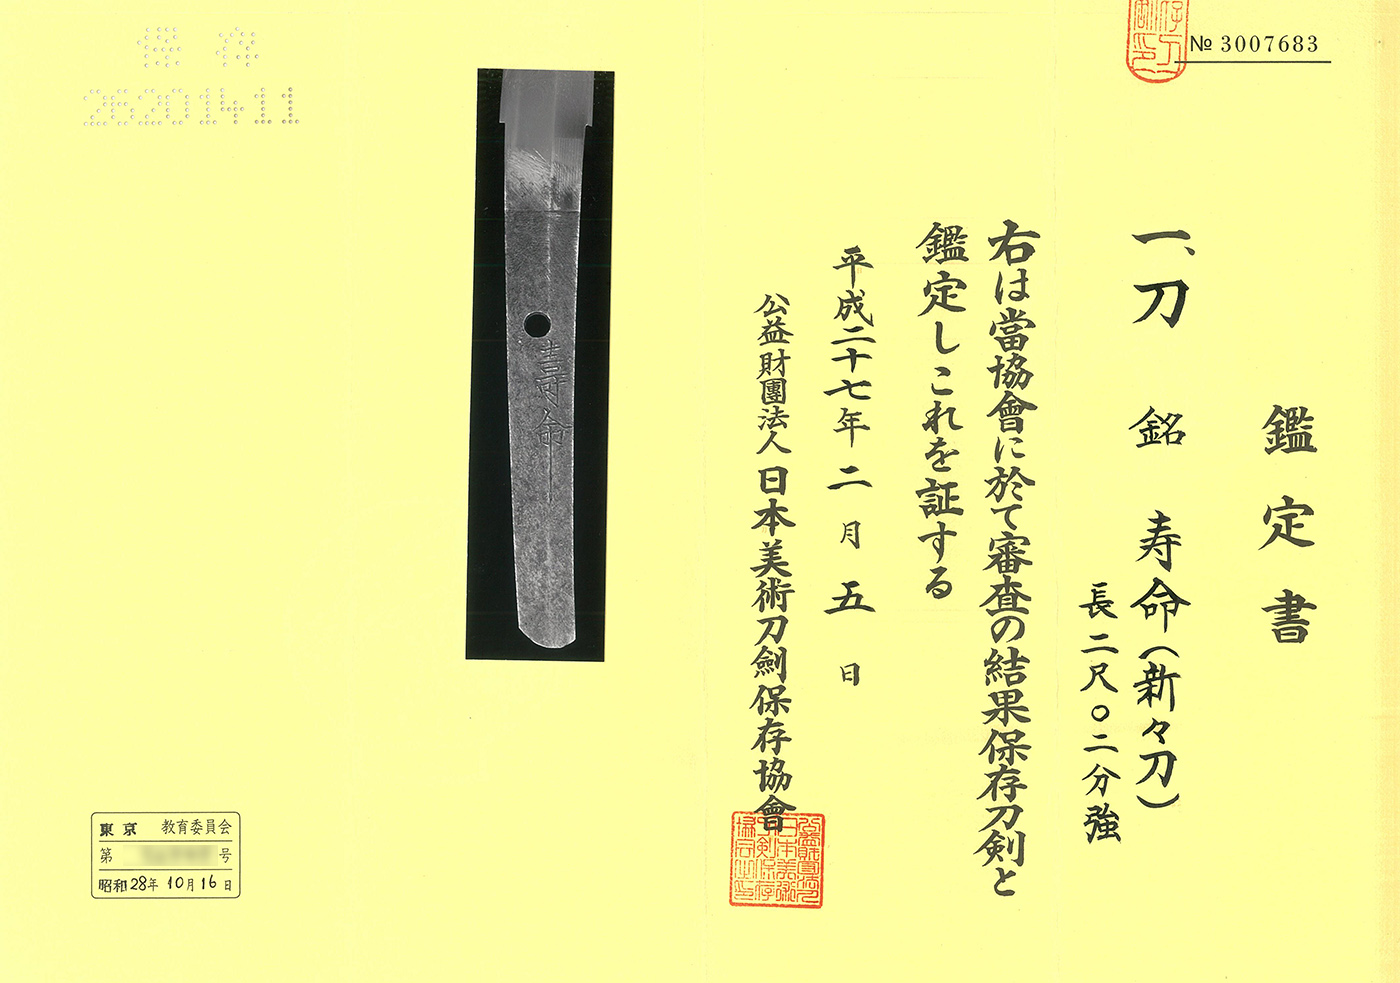 № 3007683
鑑定書
一、刀 銘 寿命(新々刀)
長二尺〇二分強
右は當協會に於て審査の結果保存刀剣と
鑑定しこれを証する
平成二十七年二月五日
公益財團法人日本美術刀劍保存協會
寿命
保存
26201411
東京 教育委員会
第 号
昭和28年10月16日